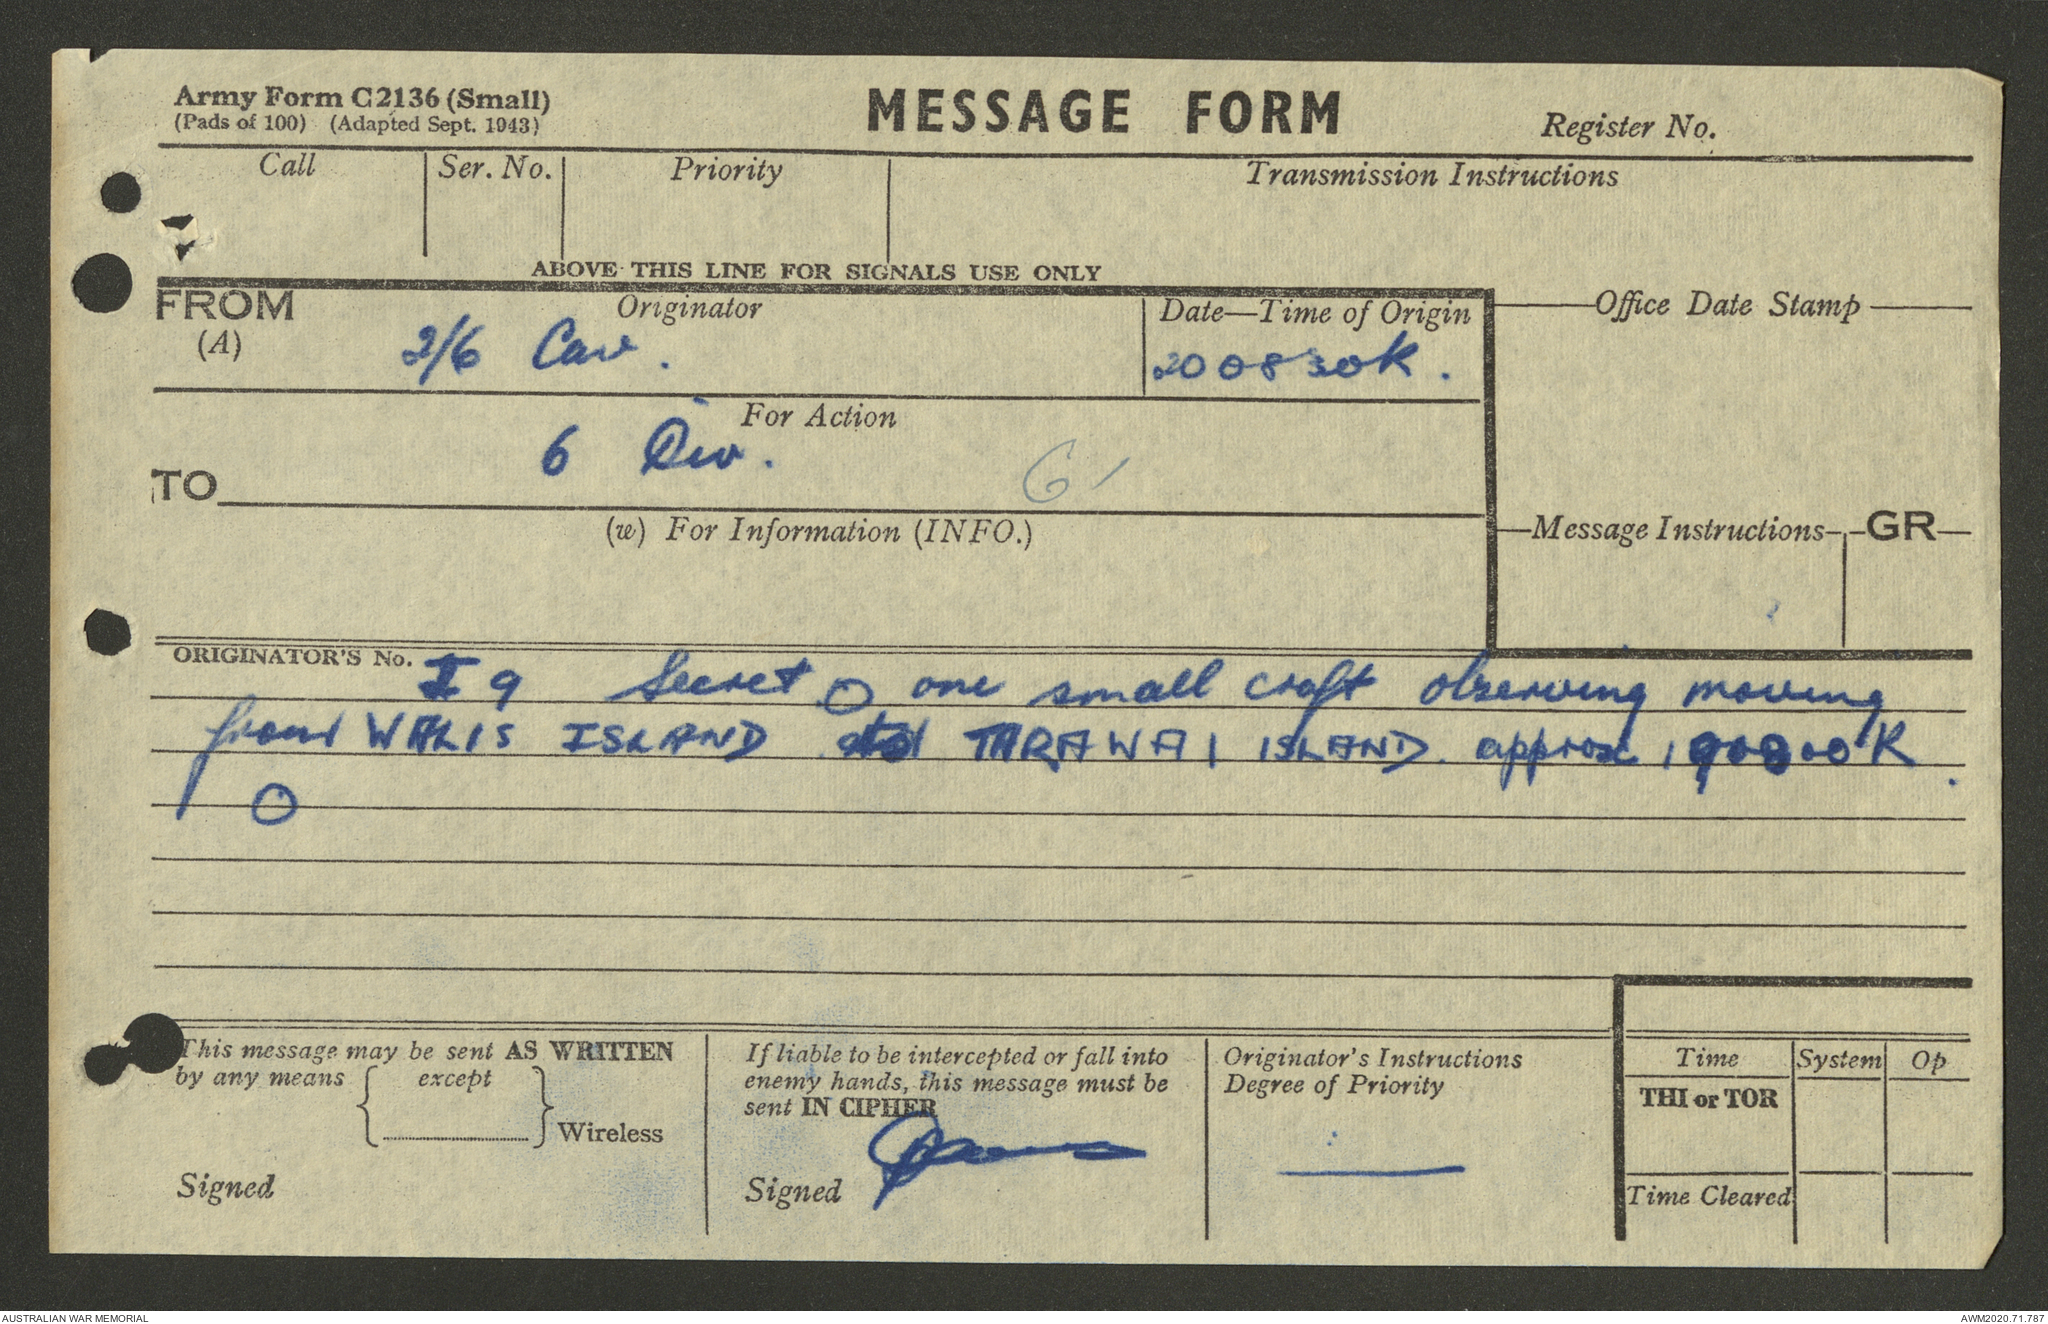 Army Form C2136 (Small)
(Pads of 100) (Adapted Sept. 1943)
MESSAGE FORM
Register No.
Call
Ser. No.
Priority
Transmission Instructions
ABOVE THIS LINE FOR SIGNALS USE ONLY
FROM
(A)
Originator
2/6 Cav.
Date—Time of Origin
200830K.
Office Date Stamp
For Action
6 Div.
G
TO
(w) For Information (INFO.)
Message Instructions
GR
ORIGINATOR'S No. I 9 Secret O one small craft observing moving
from WALIS ISLAND to TARAWAI ISLAND. approx 190800K.
O
This message may be sent AS WRITTEN
by any means { except } Wireless
Signed
If liable to be intercepted or fall into
enemy hands, this message must be
sent IN CIPHER
Signed
Originator's Instructions
Degree of Priority
Time
System
Op
THI or TOR
Time Cleared
AUSTRALIAN WAR MEMORIAL
AWM2020.71.787